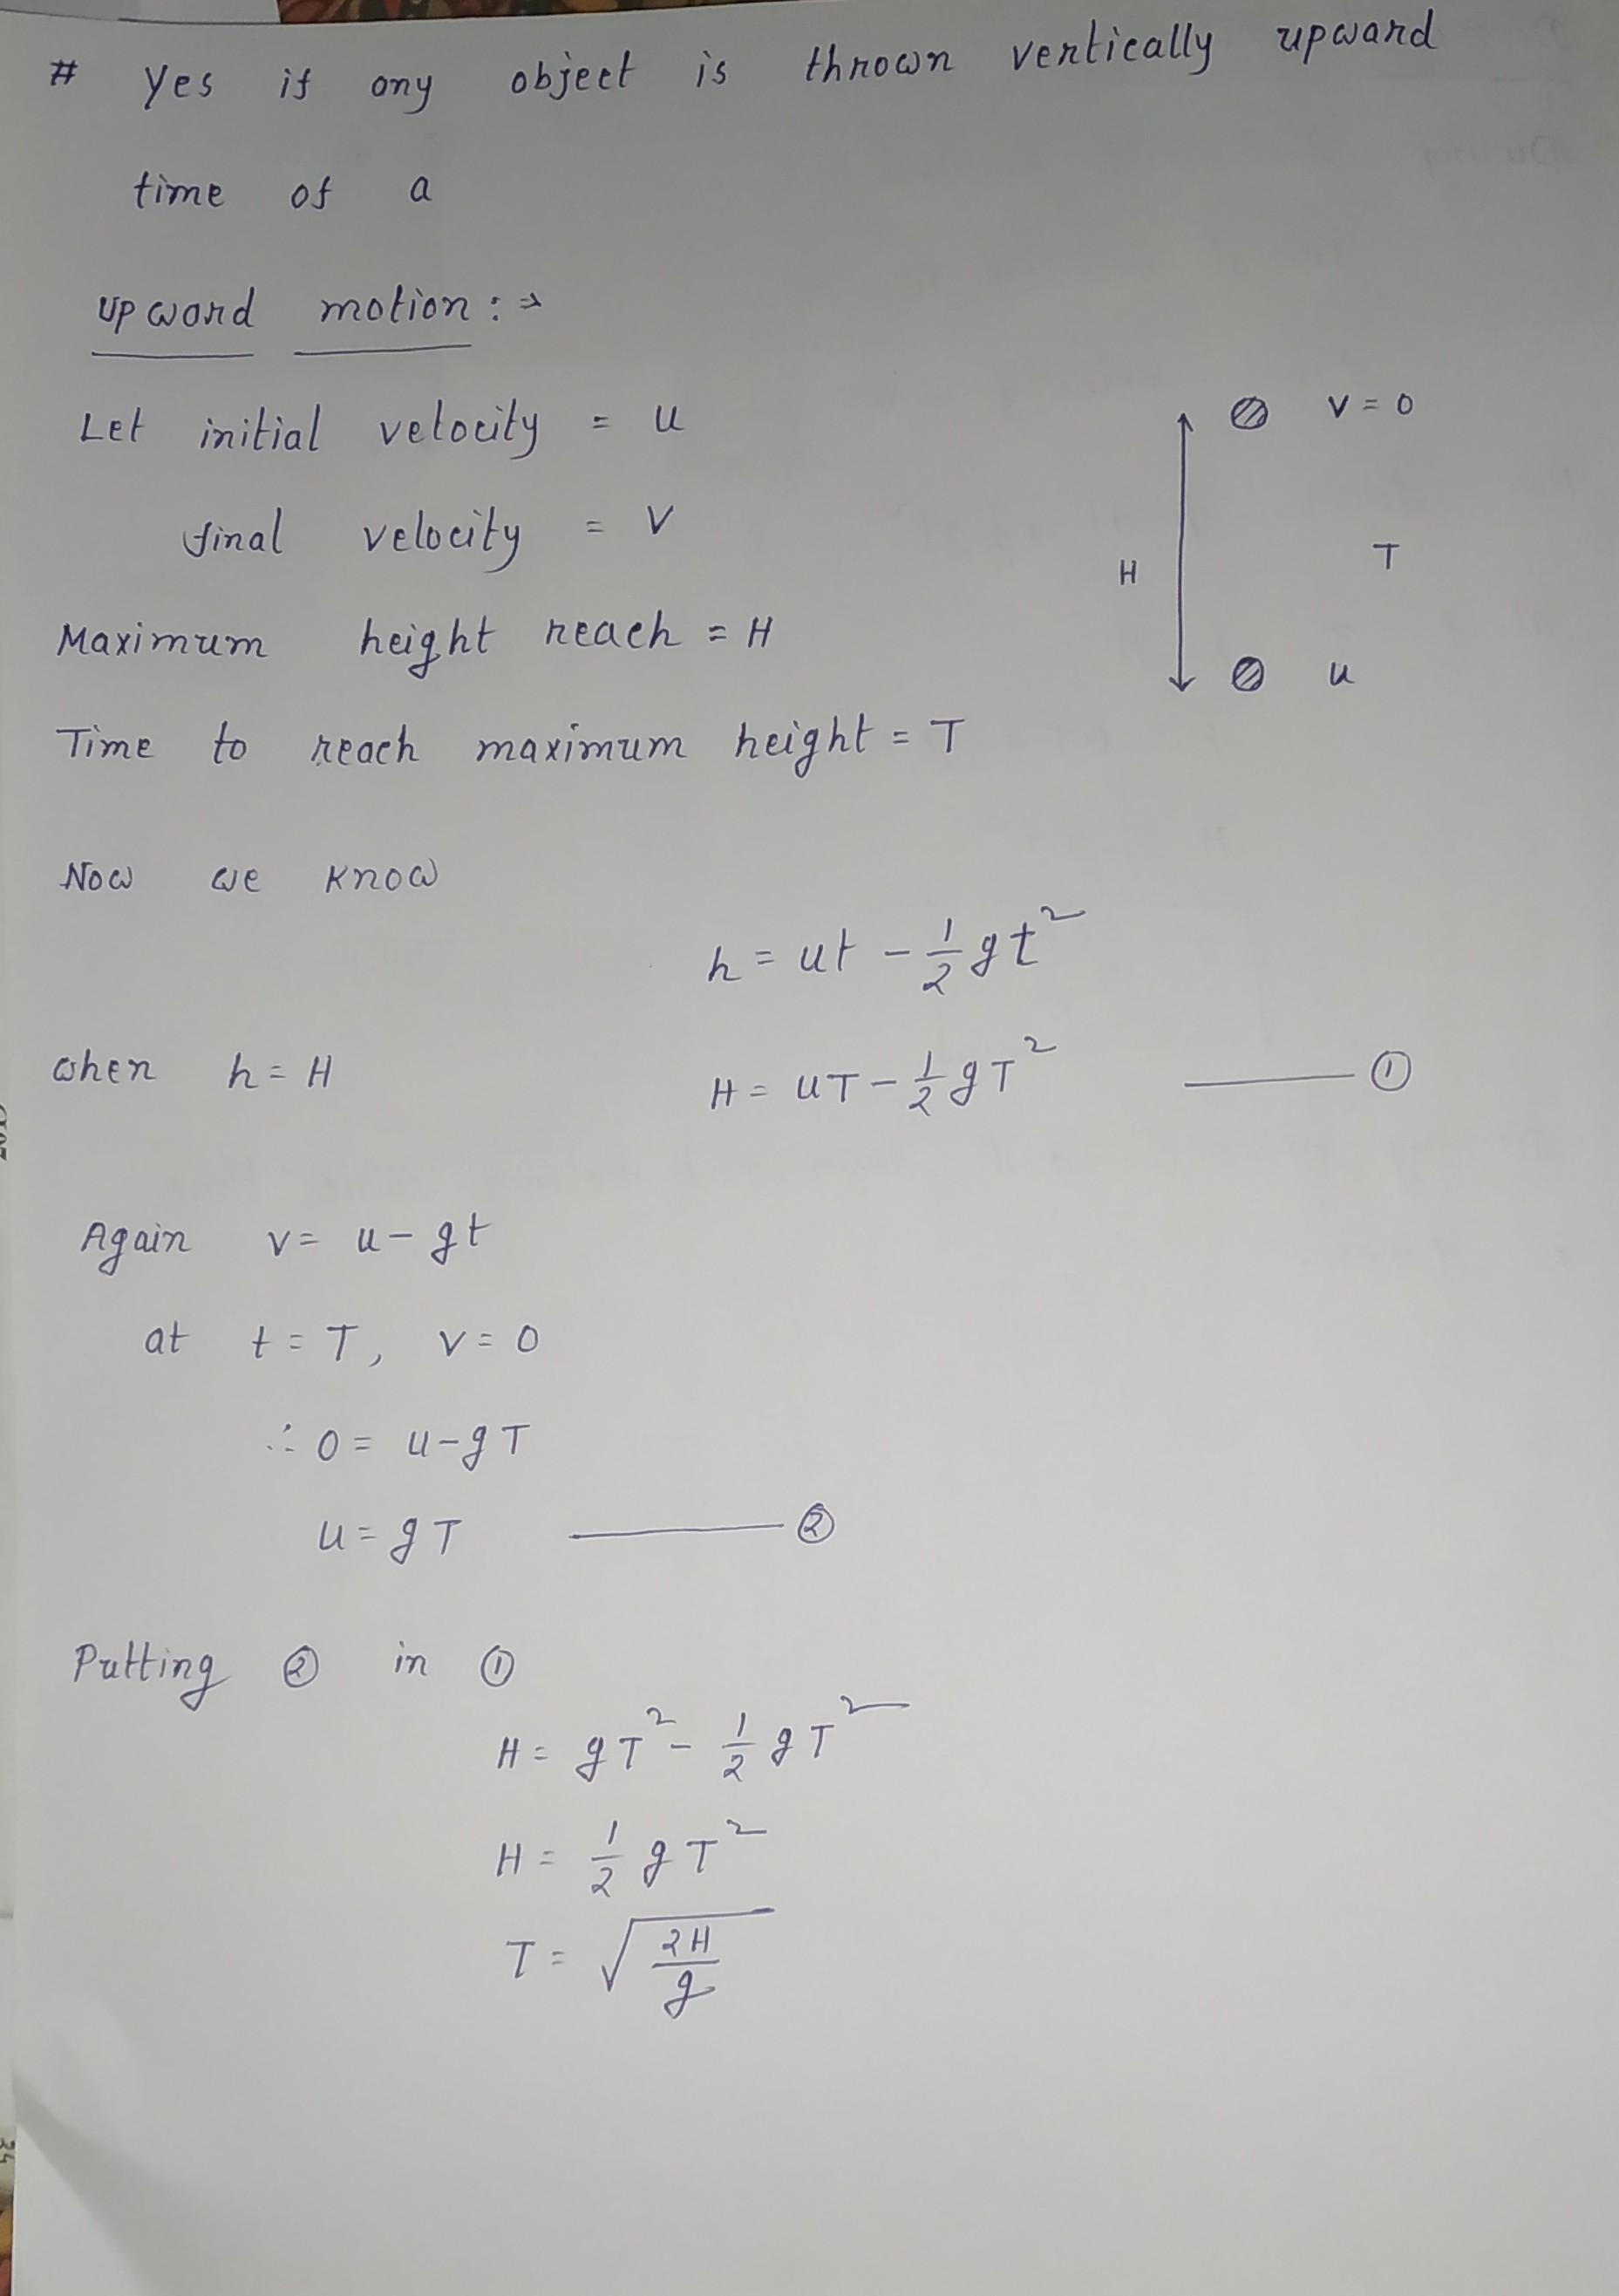 # Yes if any object is thrown vertically upward
time of a
upward motion : ⇒
Let initial velocity = u
final velocity = v
Maximum height reach = H
Time to reach maximum height = T
v = 0
H
T
u
Now we know
h = ut - 1/2 gt²
when h = H H = uT - 1/2 gT² ——— ①
Again v = u - gt
at t = T, v = 0
∴ 0 = u - gT
u = gT ——— ②
Putting ② in ①
H = gT² - 1/2 gT²
H = 1/2 gT²
T = √(2H/g)